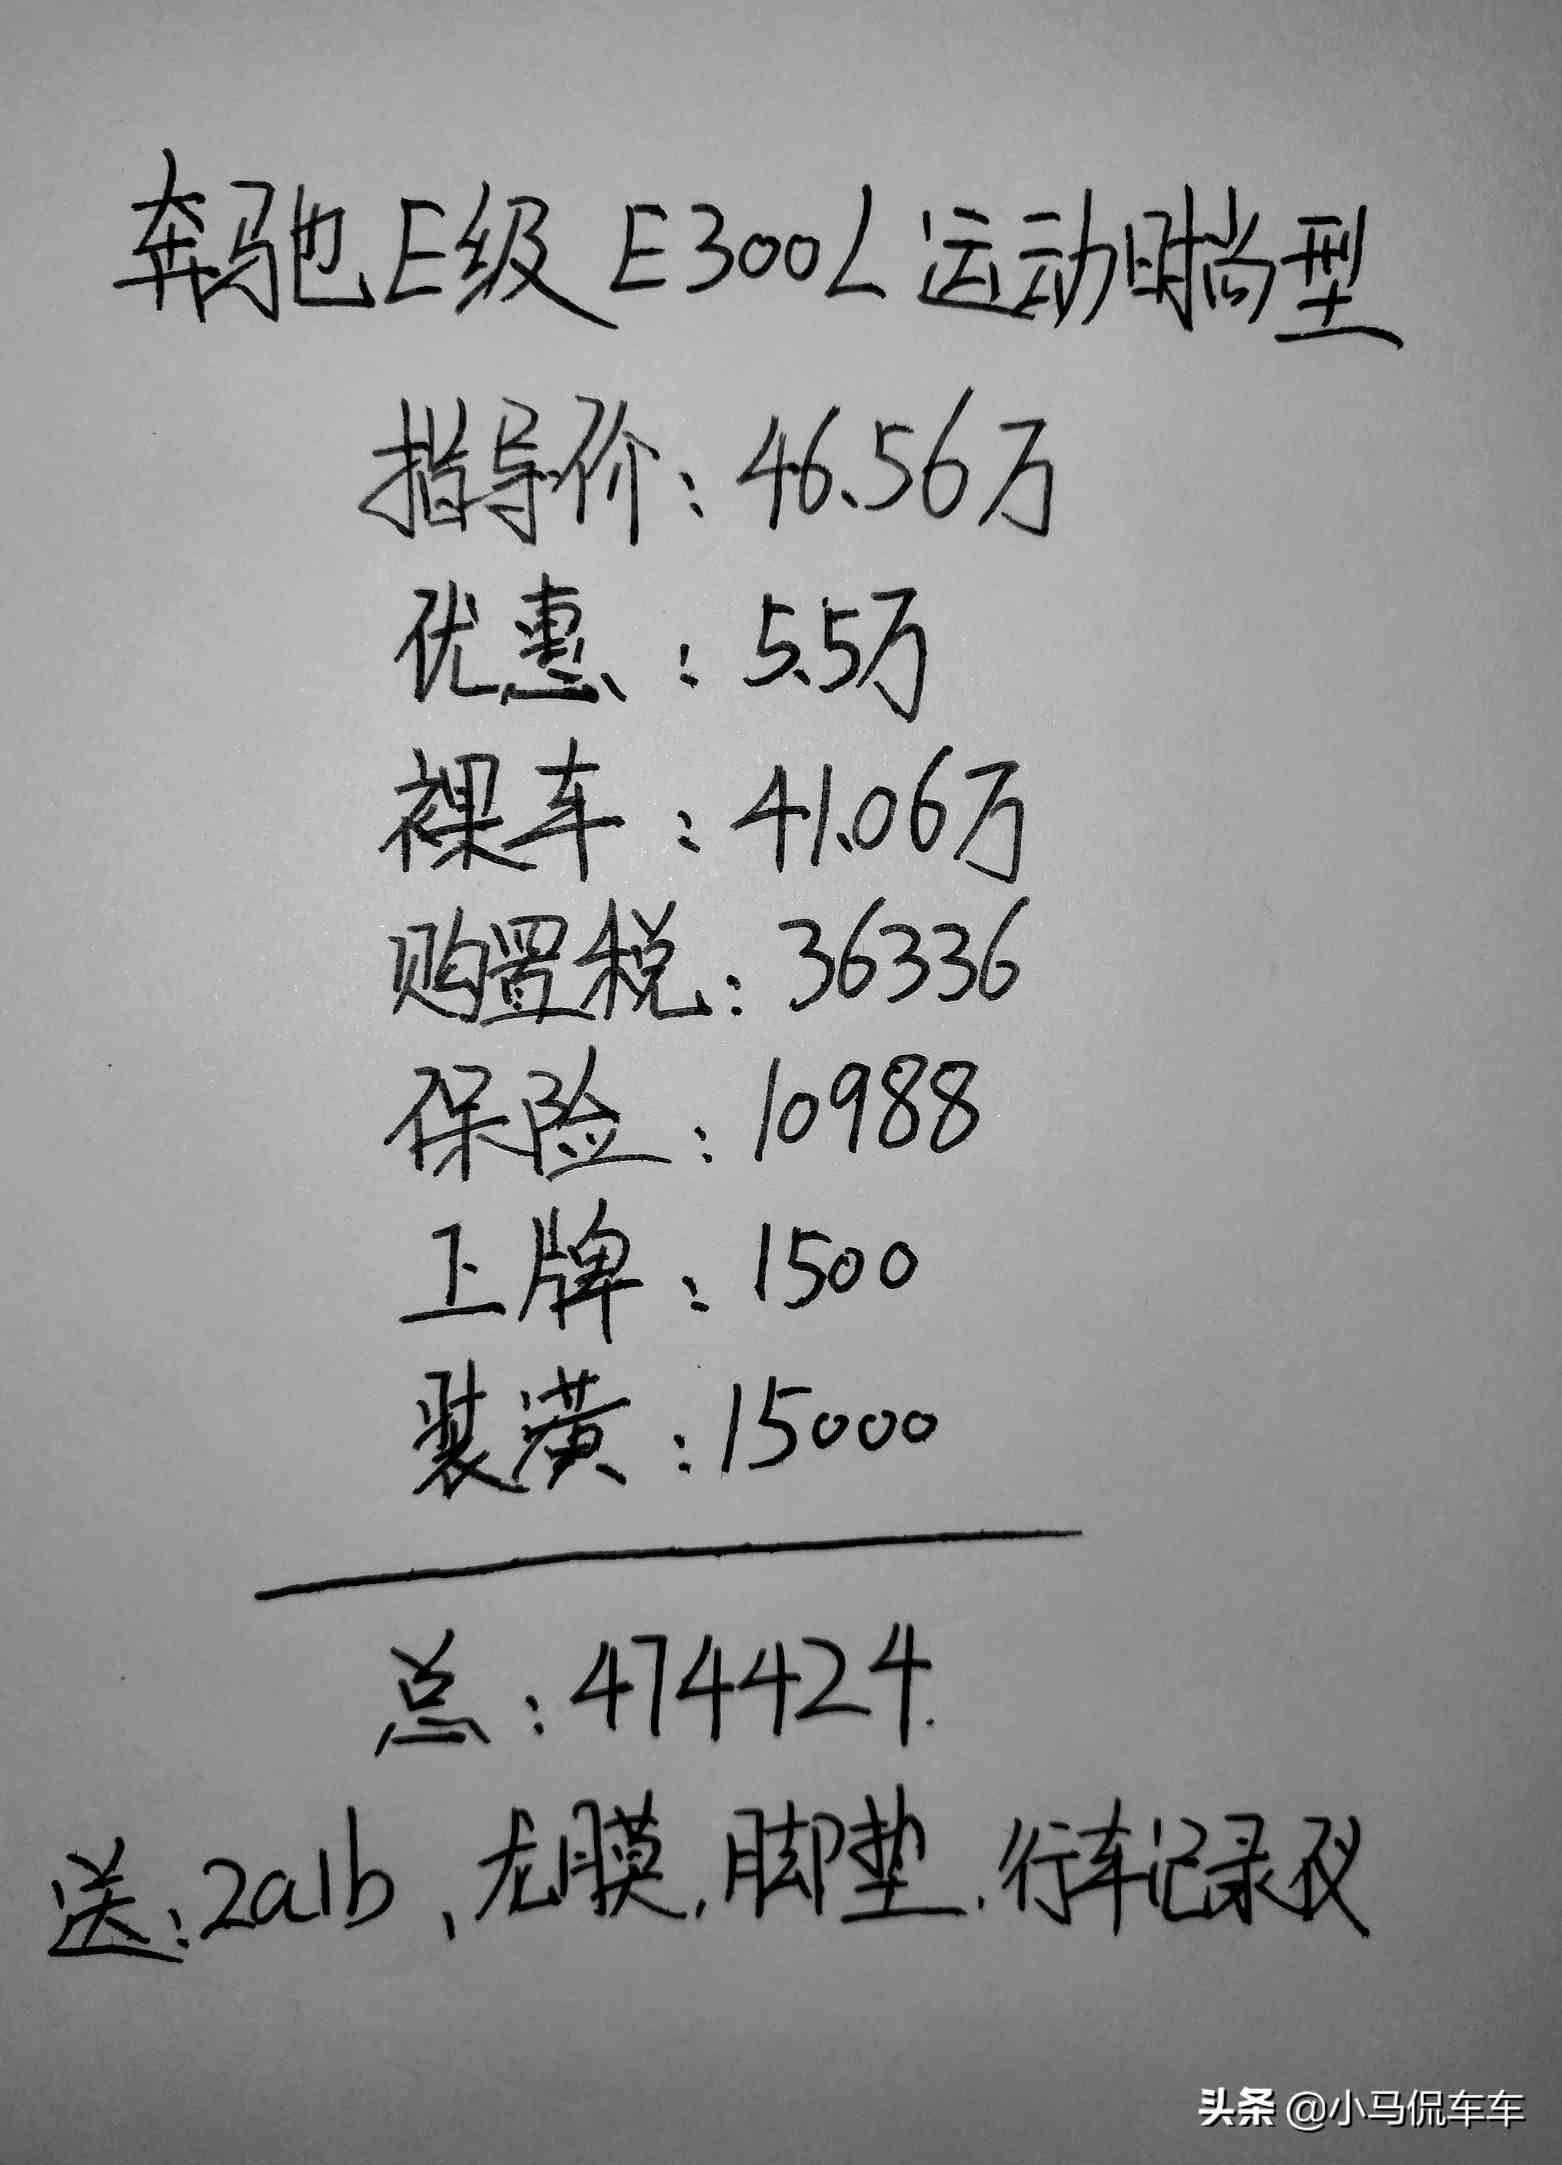 奔驰E级 E300L运动时尚型
指导价:46.56万
优惠:5.5万
裸车:41.06万
购置税:36336
保险:10988
上牌:1500
装潢:15000
总:474424.
送:2a1b、龙膜,脚垫,行车记录仪
头条 @小马侃车车